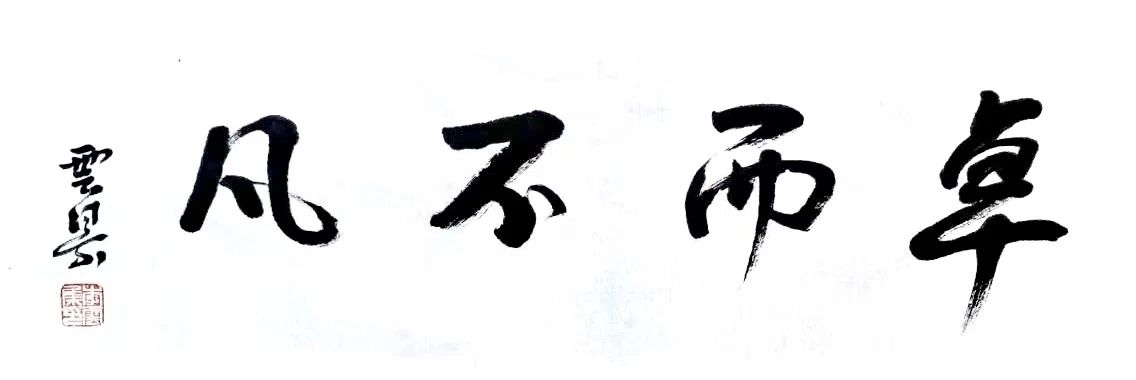 卓而不凡
雲